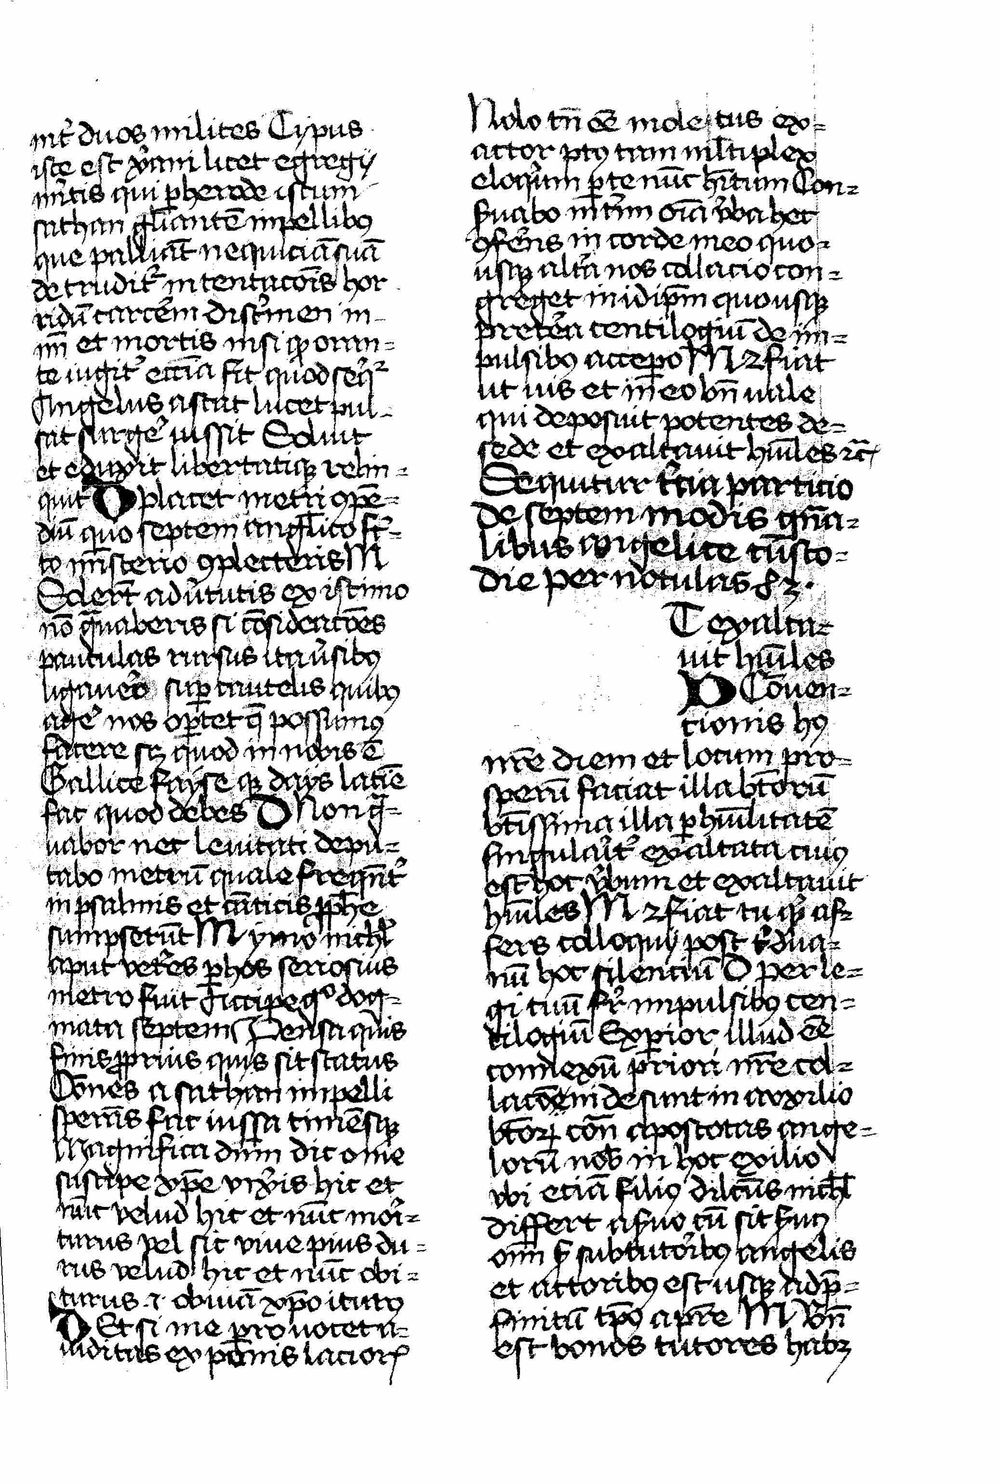 int̄ duos milites Cypus
iste est xp̄iani licet egregij
militis qui p herode istum
sathan gn̄antē in pellibꝰ
que palliāt nequiciā suā
detrudit͛ in tentacōis hor
ridū carcerem discrimen in-
im̄ et mortis nisi qꝫ oran=
te iugit͛ ecc̄ia fit quod seqͥt͛
Angelus astat lucet pul-
sat surge͛ iussit Soluit
et eduxit libertatiqꝫ relin=
quit D placet metri ꝯpē=
diū quo septem angl̄ico sc̄-
to mīsterio ꝯplecteris M
Solert͛ adv̄tutis existimo
nō gͣuaberis si cōsideratōes
pauculas rursus ita v̄sibꝰ
ligavero sup̱ cautelis quibꝰ
age͛ nos oportet q̄ possumꝰ
facere scꝫ quod in nobis ē
Gallice fayse qꝫ days latīe
fac quod debes D Non gͣ-
uabor nec levitati depu-
tabo metrū quale freqn̄t͛
in psalmis et cāticis ꝓphe
sumpserūt M ymo nichil
aput vet͛es phos seriosius
metro fuit Accipe gͦ dog-
mata septem Pensa quis
finis ꝓprius quis sit status
Oōnes a sathan impelli
sperās fac iussa timēsqꝫ
Magnifica dn̄m dic o me
suscipe xp̄e vix͛is hic et
nūc velud hic et nūc mori-
turus vel sic vive pius du=
rus velud hic et nūc obi-
turus ⁊ obviā xp̄o iturꝰ
D Et si me provocet a-
viditas ex pōmis lacioꝝ
Nolo tn̄ eē molestus ex=
actor ptꝰ tam mltiplex
eloqͥum p te nūc hītum Con=
s͛uabo īt͛im oīa v͛ba hec
ꝯfer͛ns in corde meo quo-
usqꝫ alt͛a nos collacio con=
greget in idip̄m quousqꝫ
pret͛ea centilogiū de im=
pulsibꝰ accepo M ⁊ fiat
ut vis et in eo bn̄ vale
qui deposuit potentes de=
sede et exaltavit hūiles ⁊c̄
Sequitur t͛cia particio
de septem modis gn̄a=
libus angelice custo=
die per notulas ⁊c.
T exalta=
vit hūiles
D Cōuen=
tionis hꝰ
nr̄e diem et locum pro=
sperū faciat illa bt̄orū
bt̄issima illa p hūilitatē
singularit͛ exaltata cuiꝰ
est hoc v͛bum et exaltavit
hūiles M ⁊ fiat tu qͥd af=
fers colloquij post t͛duā-
nū hoc silentiū D perle=
gi tuū sr̄ impulsibꝰ cen=
tilogiū Experior illud eē
connexū priori nr̄e col=
lacōi nde sunt in auxilio
bt̄oꝝ cōn apostotas ange=
lorū nob̄ in hoc exilio
vbi etiā filiꝰ dilcūs nichil
differt a s͛uo cū sit s͛uꝰ
oīm s͛ sub tutoribꝰ angelis
et actoribꝰ est usqꝫ ad p̄=
finitū tp̄us a pr̄e M Bn̄
est bonos tutores habꝫ